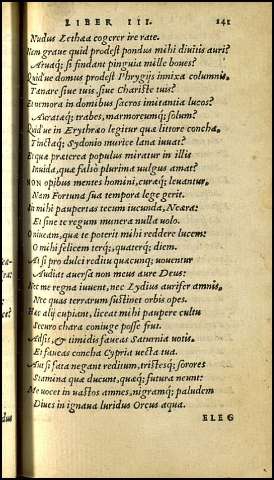 LIBER III. 241
Nudus Lethæa cogerer ire rate.
Nam graue quid prodest pondus mihi diuitis auri?
Aruaq; si findant pinguia mille boues?
Quid'ue domus prodest Phrygijs innixa columnis.
Tænare siue tuis, siue Chariste tuis?
Et nemora in domibus sacros imitantia lucos?
Aurataq; trabes, marmoreumq; solum?
Quid'ue in Erythræo legitur quæ littore concha.
Tinctaq; Sydonio murice lana iuuat?
Et quæ præterea populus miratur in illis
Inuida, quæ falso plurima uulgus amat?
NON opibus mentes homini, curæq; leuantur.
Nam Fortuna sua tempora lege gerit.
Sit mihi paupertas tecum iucunda, Neæra:
Et sine te regum munera nulla uolo.
O niueam, quæ te poterit mihi reddere lucem:
O mihi felicem terq;, quaterq; diem.
At si pro dulci reditu quæcunq; uouentur
Audiat auersa non meus aure Deus:
Nec me regna iuuent, nec Lydius aurifer amnis.
Nec quas terrarum sustinet orbis opes.
Hæc alij cupiant, liceat mihi paupere cultu
Securo chara coniuge posse frui.
Adsis, & timidis faueas Saturnia uotis.
Et faueas concha Cypria uecta tua.
Aut si fata negant reditum, tristesq; sorores
Stamina quæ ducunt, quæq; futura neunt:
Me uocet in uastos amnes, nigramq; paludem
Diues in ignaua luridus Orcus aqua.
ELEG